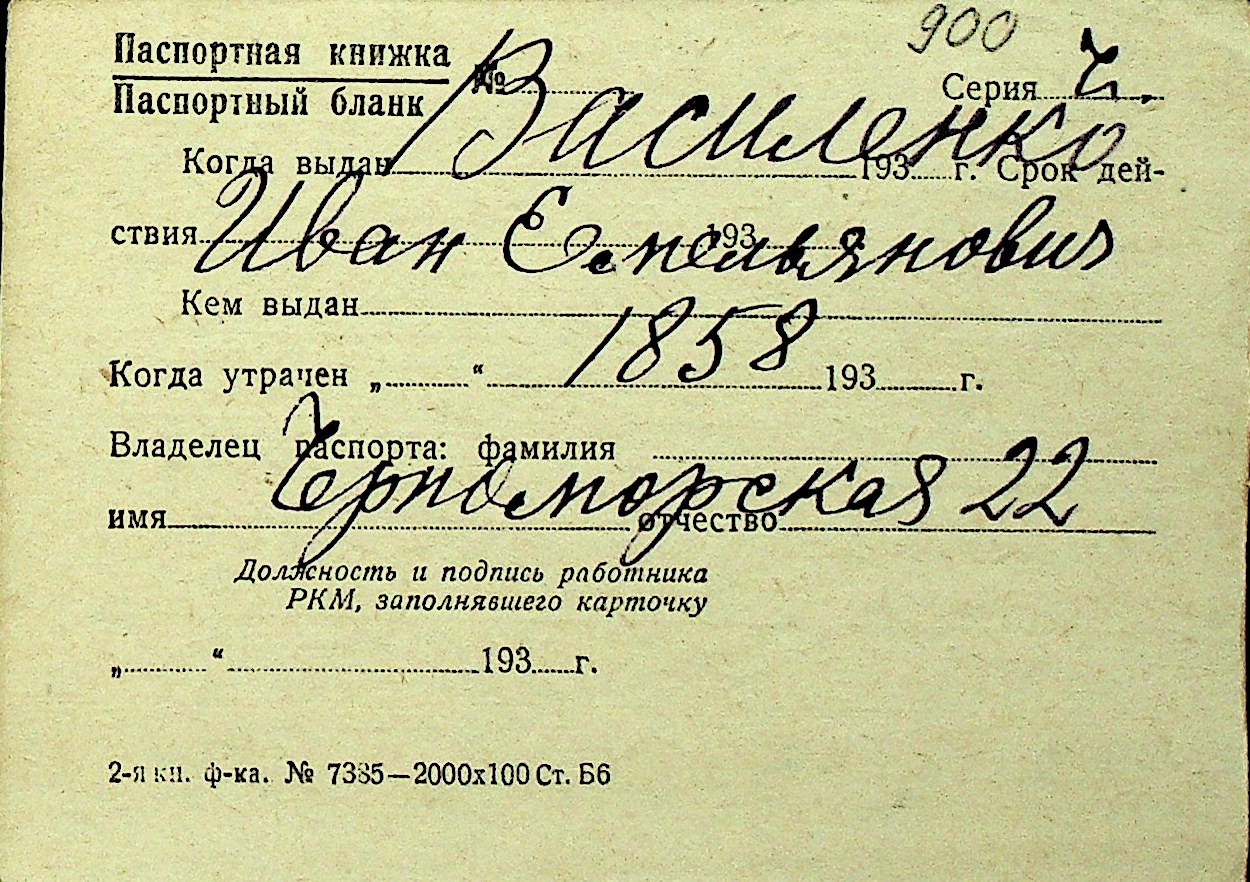 900
Паспортная книжка
Паспортный бланк
№ Серия ч.
Василенко
Когда выдан 193 г. Срок дей-
ствия 193
Иван Емельянович
Кем выдан
1858
Когда утрачен „ “ 193 г.
Владелец паспорта: фамилия
Черноморская 22
имя отчество
Должность и подпись работника
РКМ, заполнявшего карточку
„ “ 193 г.
2-я кн. ф-ка. № 7385—2000х100 Ст. Б6